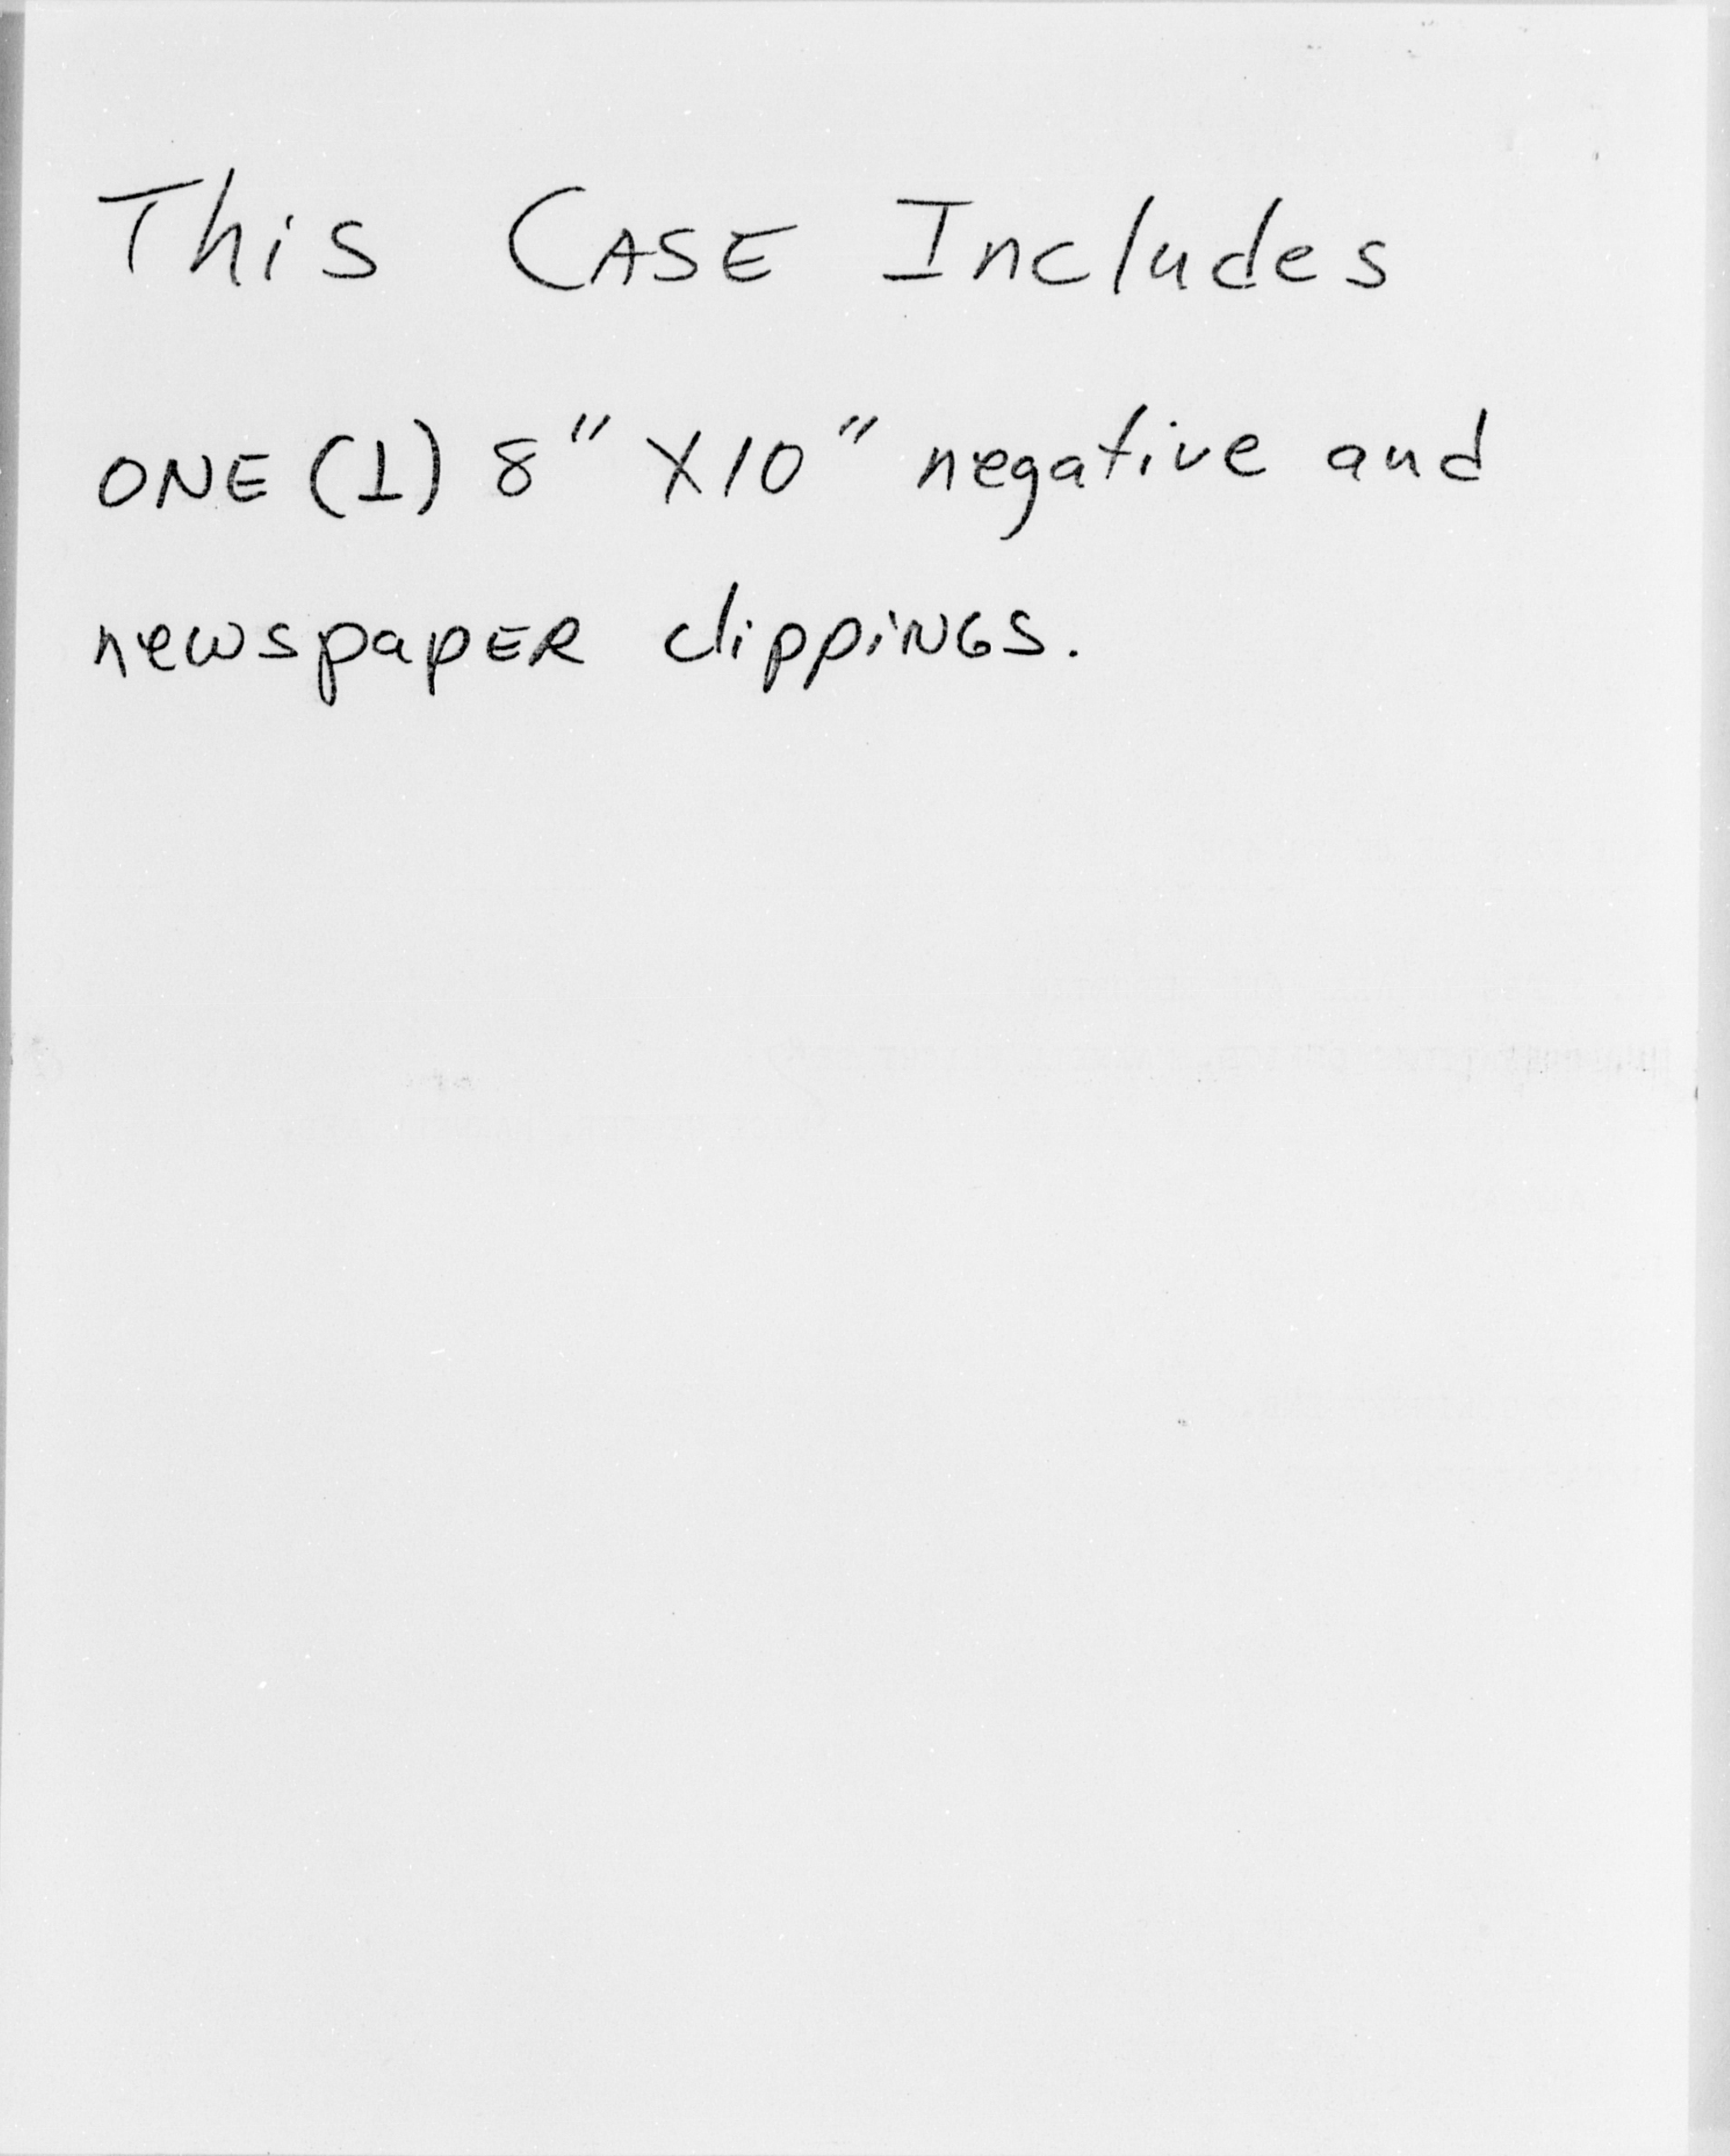 This CASE Includes
ONE (1) 8" X10" negative and
newspapER clippiNGS.